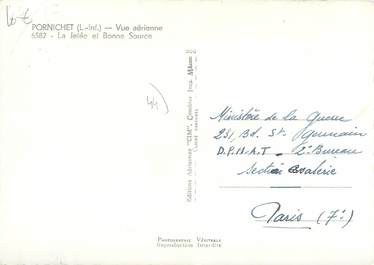 PORNICHET (L.-Inf.) — Vue aérienne
6582 - La Jetée et Bonne Source
44)
Editions Aériennes "CIM", Combier Imp. Mâcon
Ministère de la Guerre
231, Bd. St. Germain
2e Bureau
Section
Paris (7e)
PHOTOGRAPHIE VÉRITABLE
Reproduction Interdite